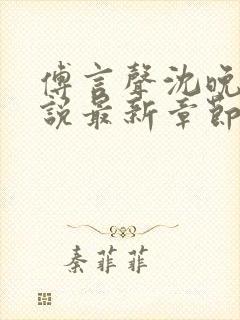 傅言聲沈晚
說最新章節
秦菲菲